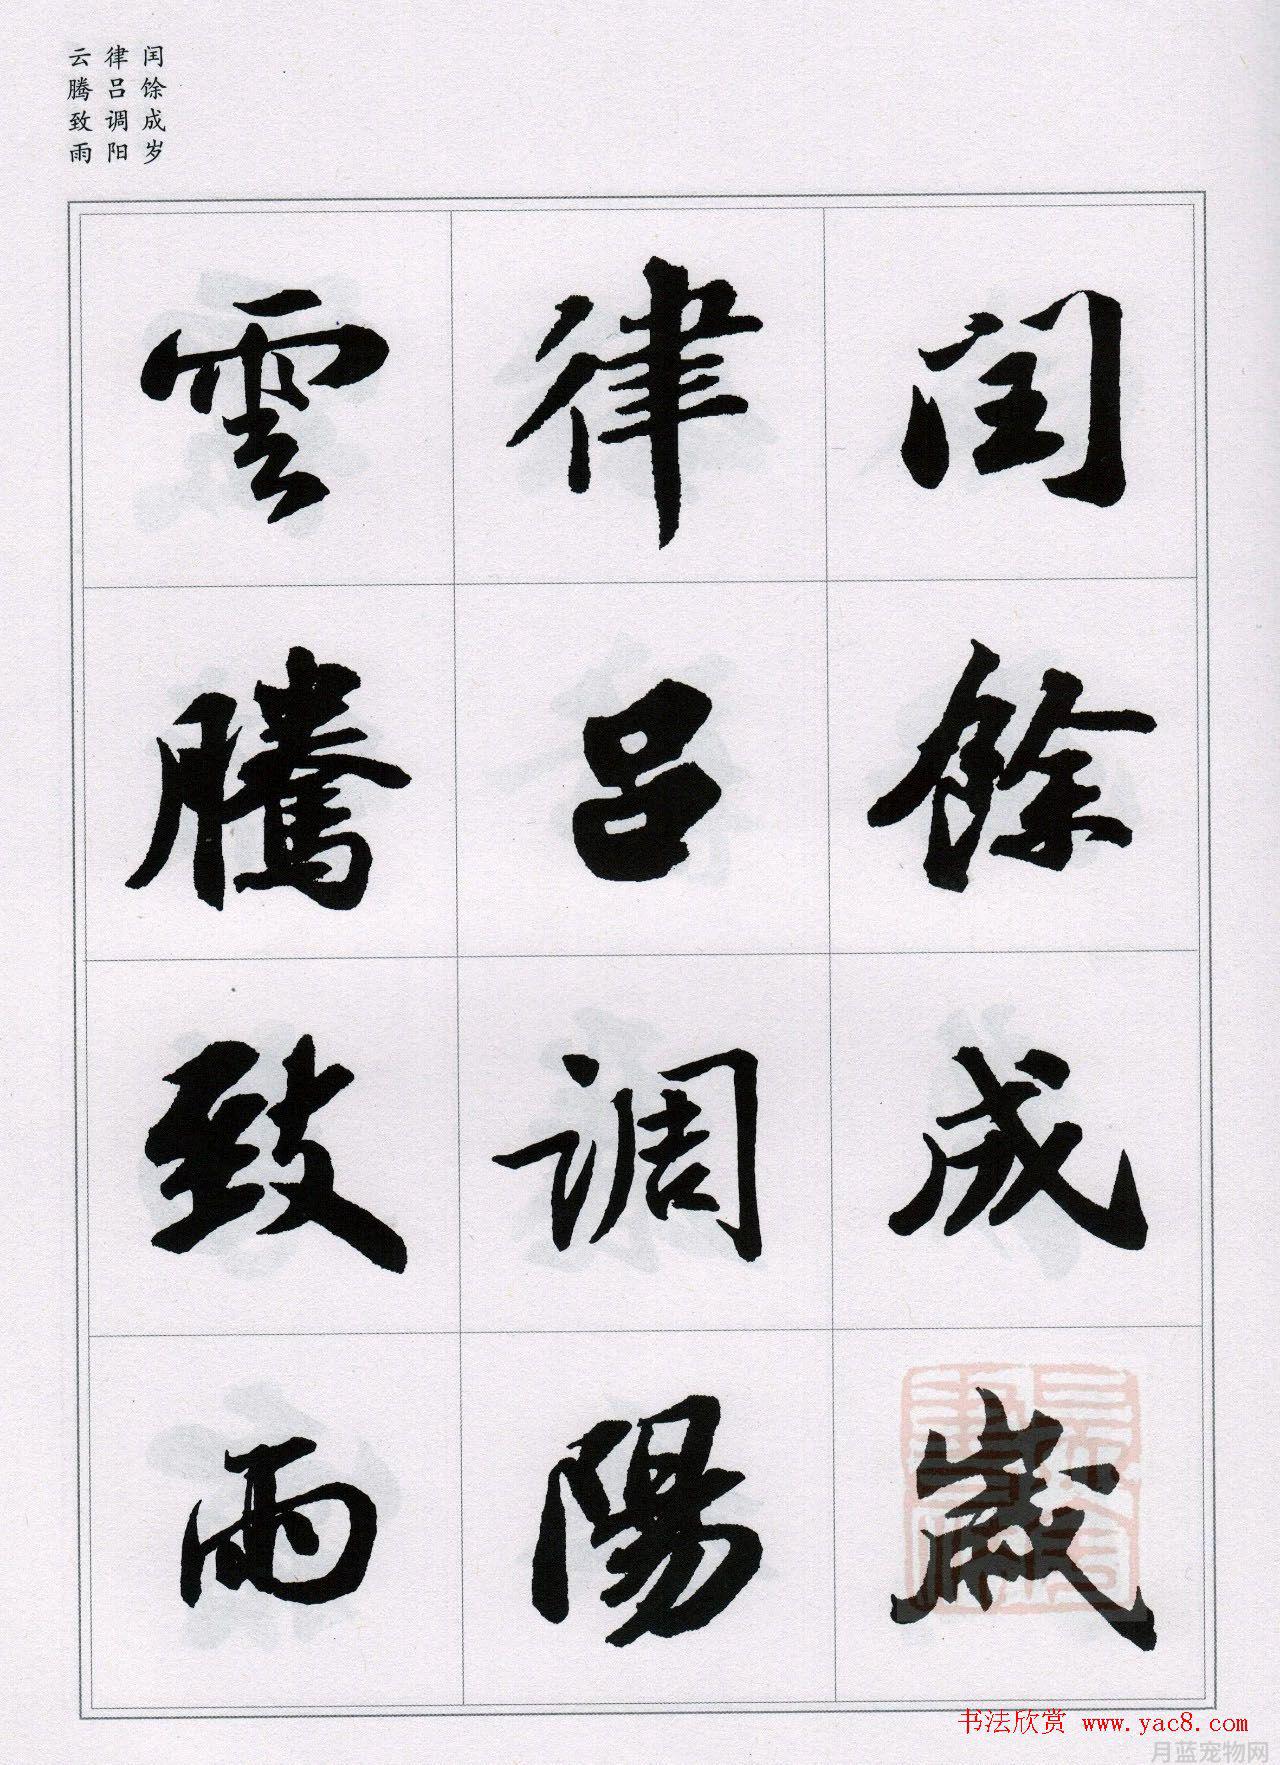 闰馀成岁
律吕调阳
云腾致雨
闰餘成歲
律吕调陽
雲騰致雨
书法欣赏 www.yac8.com
月蓝宠物网